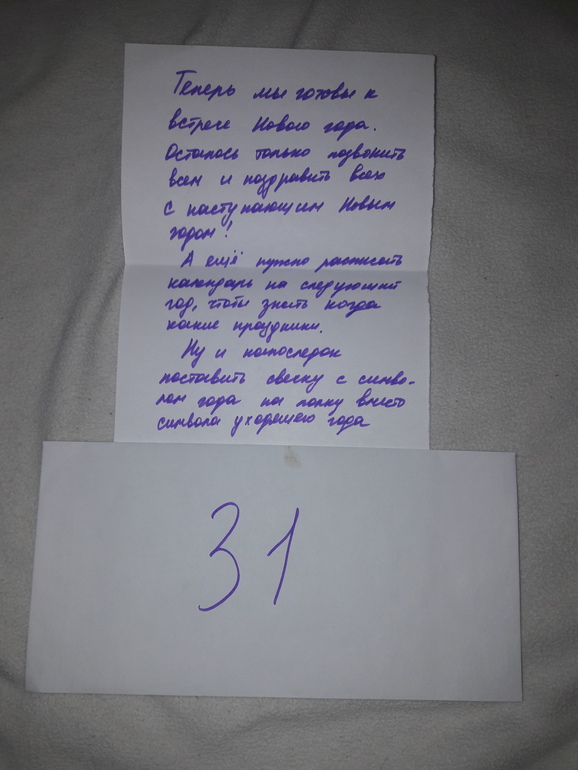 Теперь мы готовы к
встрече Нового года.
Осталось только позвонить
всем и поздравить всех
с наступающим Новым
годом!
А ещё нужно расписать
календарь на следующий
год, чтобы знать когда
какие праздники.
Ну и напоследок
поставить свечку с симво-
лом года на полку вместо
символа уходящего года
31